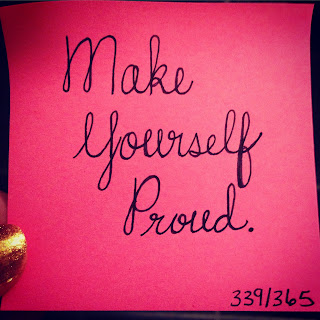 Make
Yourself
Proud.
339/365